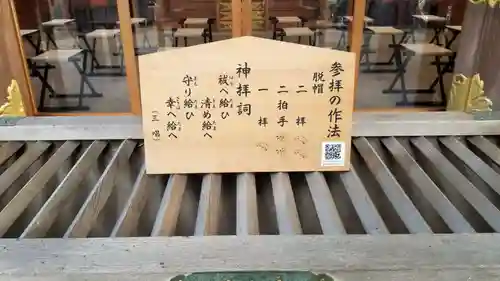 参拝の作法
脱帽
二拝
二拍手
一拝
神拝詞
祓へ給ひ
清め給へ
守り給ひ
幸へ給へ
(三唱)